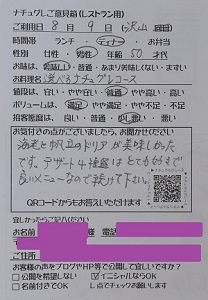 ナチュグレご意見箱(レストラン用)
ご利用日 8月 9日 沢山 回目
時間帯 ランチ・ディナー・お弁当
性別 女性・男性 年齢 50 才代
お味は、美味しい・普通・あまり美味しくない・まずい
お料理名 選べるナチュグルコース
値段は、安い・やや安い・普通・やや高い・高い
ボリュームは、満足・やや満足・やや不足・不足
接客態度は、良い・普通・少し悪い・悪い
お気付きの点がございましたら、お聞かせください
海老と帆立のドリアが美味しかった
です。デザート4種盛はとても好きで
良いメニューなので続けて下さい。
QRコードからもお答えいただけます
宜しかったらご記入ください
お名前 様 電話
ご住所
お客様の声をブログやHP等で公開して宜しいですか?
□公開を希望しない ☑イニシャルならOK
□名前付きでOK し点でチェックお願いします